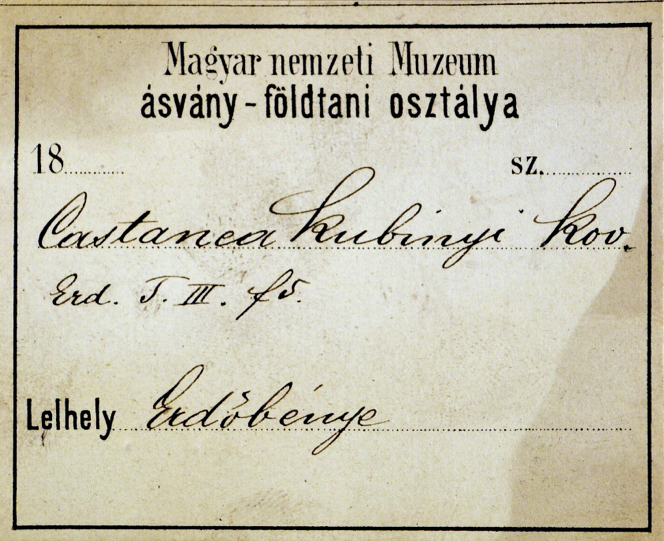 Magyar nemzeti Muzeum
ásvány-földtani osztálya
18.......... sz. ..........
Castanea Kubinyi Kov.
Erd. T. III. f5.
Lelhely Erdőbénye